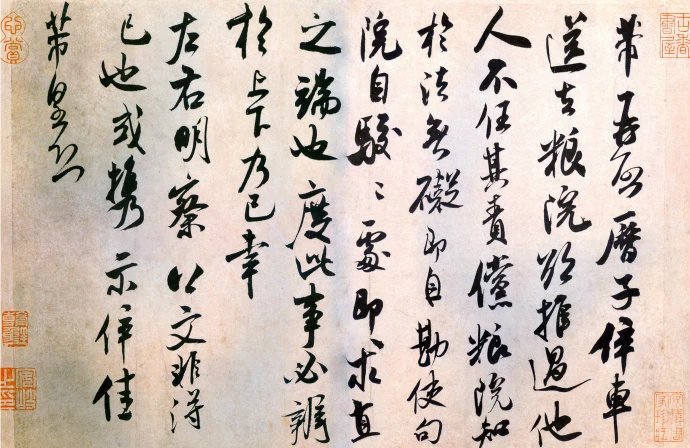 芾再啟曆子併車
送去粮院欲推過他
人不任其責儻粮院知
於法無礙即自勘使句
院自駁〻處即求直
之端也度此事必辨
於上下乃已幸
左右明察以文非得
已也或攜示併佳
芾皇恐